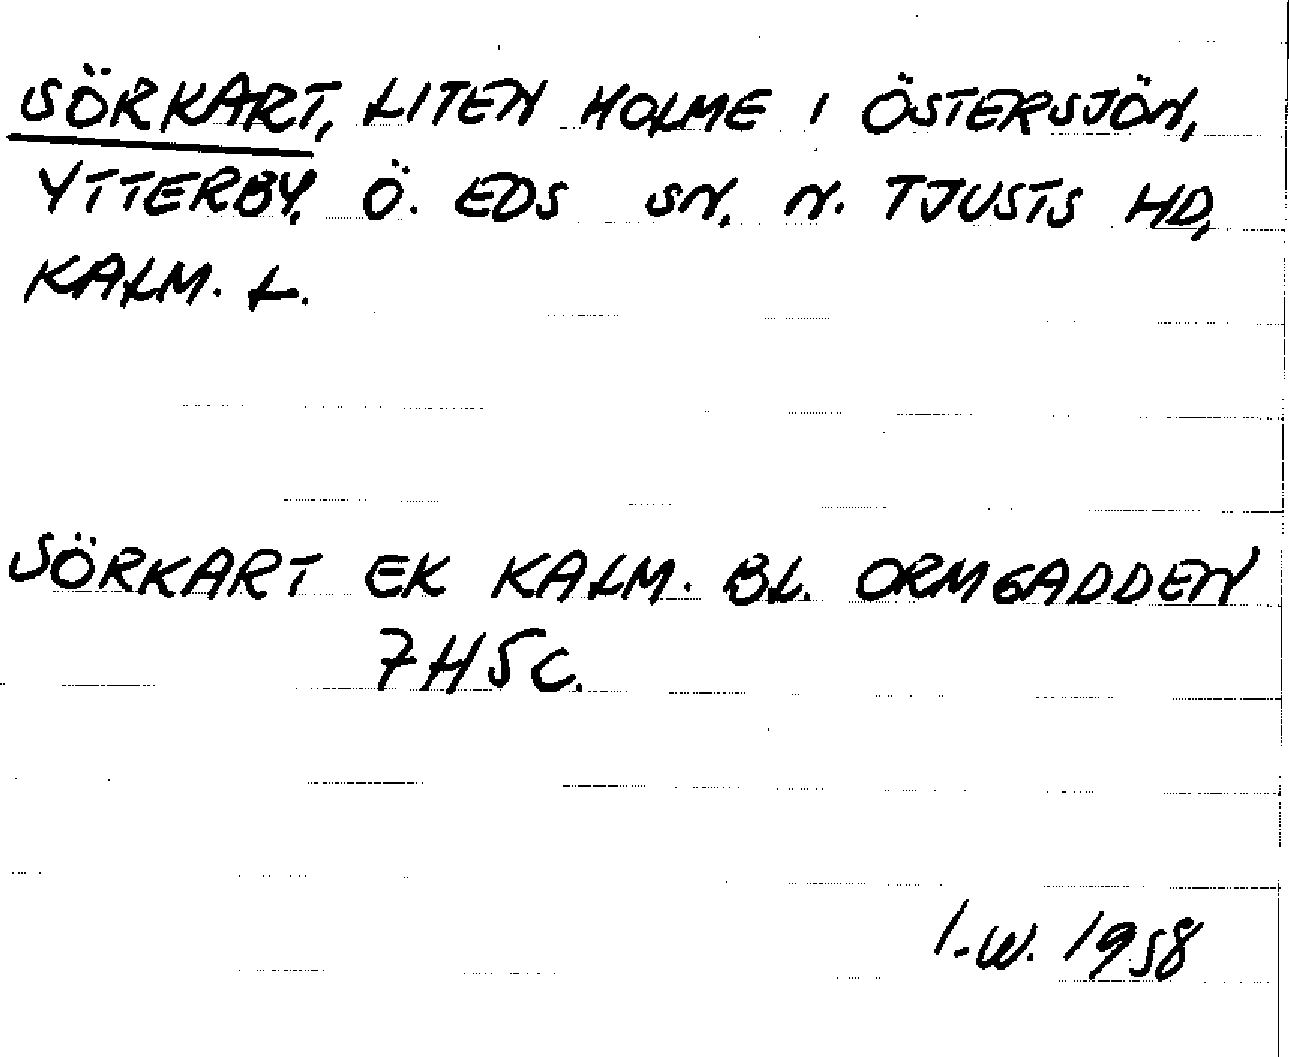 SÖRKART, LITEN HOLME I ÖSTERSJÖN,
YTTERBY, Ö. EDS SN, N. TJUSTS HD,
KALM. L.
SÖRKART EK KALM. BL. ORMGADDEN
7H5C.
I-W. 1958